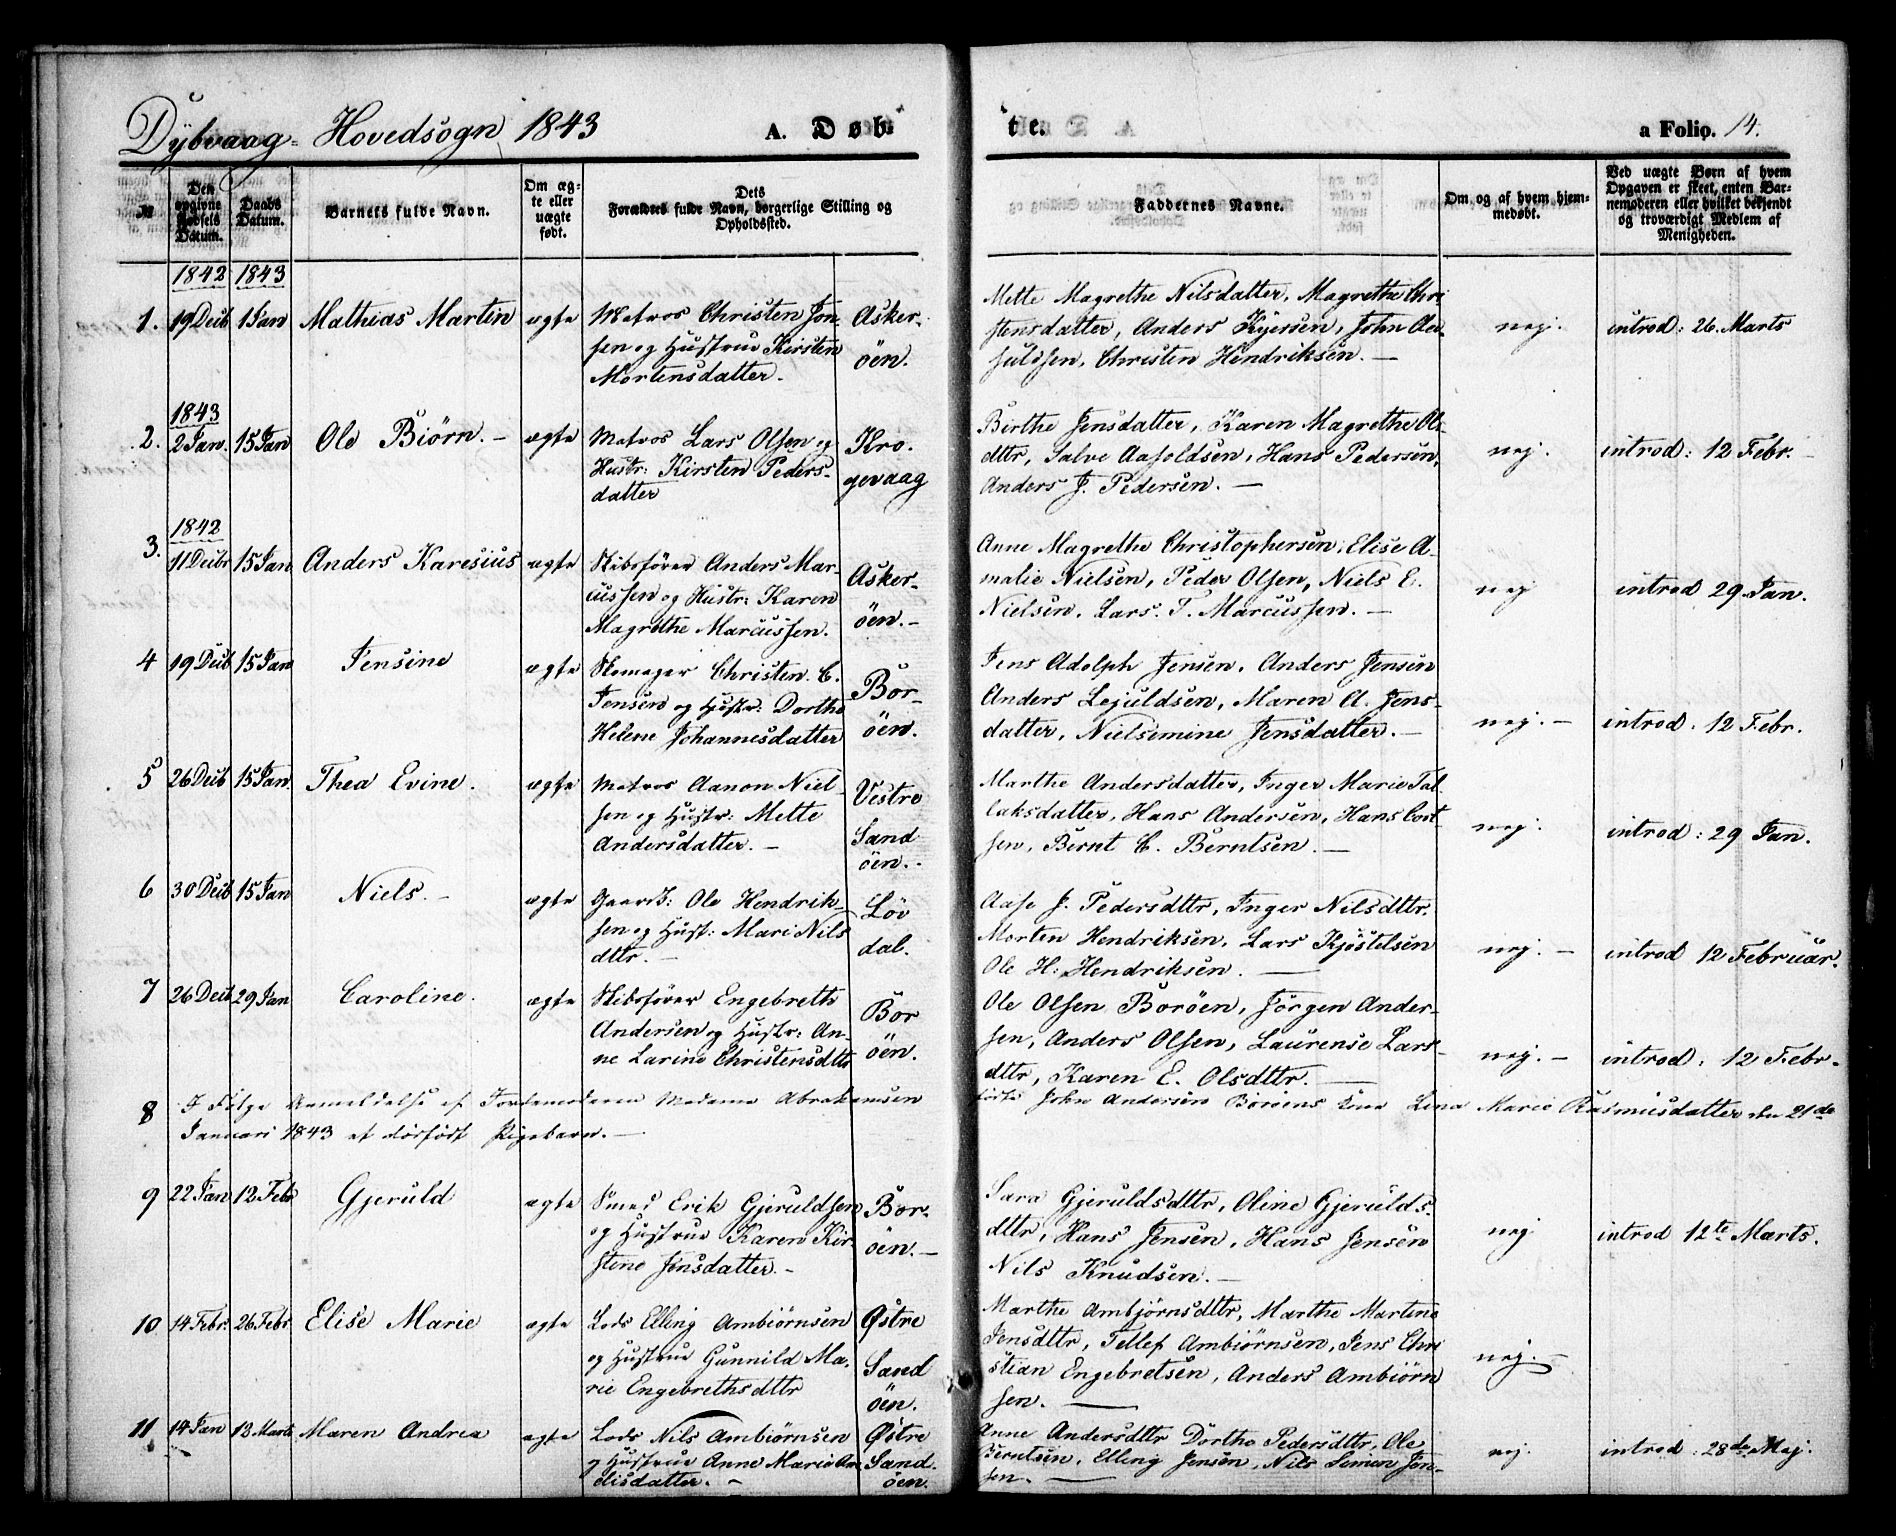 Dybvaag- Hovedsogn 1843 A. Døb-
te. a Folio. 14.
№ Den opgivne Fødsels Datum. Daabs Datum. Barnets fulde Navn. Om ægte eller uægte født. Dets Forældres fulde Navn, borgerlige Stilling og Opholdssted.
Faddernes Navne. Om og af hvem hjemmedøbt. Ved uægte Børn af hvem Opgaven er skeet, enten Barnemoderen eller hvilket bekjendt og troværdigt Medlem af Menigheden.
1842 1843
1. 19 Decb 1 Jan Mathias Martin ægte Matros Christen Jen-
sen og Hustrue Kirsten
Mortensdatter.
Asker-
öen.
Mette Magrethe Nilsdatter, Magrethe Chri
stensdatter, Anders Kyersen, John
Christen Hendriksen. —
nej. introd: 26. Marts
1843
2. 2 Jan. 15 Jan Ole Biörn. — ægte Matros Lars Olsen og
Hustr: Kirsten Peders-
datter
Kro.
gevaag
Birthe Jensdatter, Karen Magrethe Ols
dttr, Salve Aasoldsen, Hans Pedersen,
Anders J. Pedersen. —
nej. introd: 12 Febr. -
1842
3. 11 Decbr 15 Jan Anders Karesius ægte Skibsfører Anders Mar-
cussen og Hustr: Karen
Magrethe Marcussen.
Asker-
öen. -
Anne Magrethe Christophersen, Elise A-
malie Nielsen, Peder Olsen, Niels E.
Nielsen, Lars. T. Marcussen. —
nej introd 29 Jan.
4 19 Decb 15 Jan Jensine ægte Skomager Christen. C.
Jensen og Hustr: Dorthe
Helene Johannesdatter
Bor-
öen.
Jens Adolph Jensen, Anders Jensen
Anders Lejuldsen, Maren A. Jens-
datter, Nielsemine Jensdatter. —
nej. — introd. 12 Febr.
5 26 Decb 15 Jan Thea Evine. ægte Matros Aanon Niel-
sen og Hustr: Mette
Andersdatter. —
Vestre
Sand
öen. -
Marthe Andersdatter, Inger Marie Tal-
laksdatter, Hans Andersen, Hans Cort-
sen, Bernt C. Berntsen. —
nej. introd: 29 Jan.
6 30 Decb 15 Jan Niels. — ægte Gaardb: Ole Hendrik-
sen og Hust: Mari Nils
dttr. —
Löv
dal.
Aase J. Pedersdttr, Inger Nilsdttr,
Morten Hendriksen, Lars Kjöstelsen
Ole H: Hendriksen. —
nej. — introd 12 Februar.
7 26 Decb 29 Jan Caroline. ægte Skibsfører Engebreth
Andersen og Hustr: An-
ne Larine Christensdttr
Bor
öen.
Ole Olsen Boröen, Jörgen Ander-
sen, Anders Olsen, Laurense Lars-
dttr, Karen E. Olsdttr. —
nej. — introd. 12 Febr.
8 I Fölge Anmeldelse af Jordemoderen Madame Abrahamsen fødte John Andersen Boröens Kone Lena Marie Rasmusdatter den 21de
Januari 1843 et dödfödt Pigebarn. —
9 22 Jan 12 Febr Gjeruld ægte Smed Erik Gjeruldsen
og Hustrue Karen Kir-
stine Jensdatter. -
Bor-
öen. —
Sara Gjeruldsdttr, Oline Gjerulds-
dttr, Hans Jensen, Hans Jensen
Nils Knudsen. —
nej introd 12te Marts.
10 14 Febr. 26 Febr Elise Marie ægte Lods Elling Ambiörnsen
og Hustrue Gunnild Ma-
rie Engebrethsdttr
Østre
Sand
öen.
Marthe Ambjörnsdttr, Marthe Martine
Jensdttr, Tellef Ambiörnsen, Jens Chri
stian Engebretsen, Anders Ambiörn
sen. —
nej. —
11 14 Jan 13 Marts Maren Andrea ægte Lods Nils Ambiörnsen
og Hustrue Anne Marie
disdatter. —
Østre
Sand.
öen.
Anne Andersdttr Dorthe Pedersdttr, Ole
Berntsen, Elling Jensen, Nils Simon Jen-
sen. —
nej introd: 28de Maj.